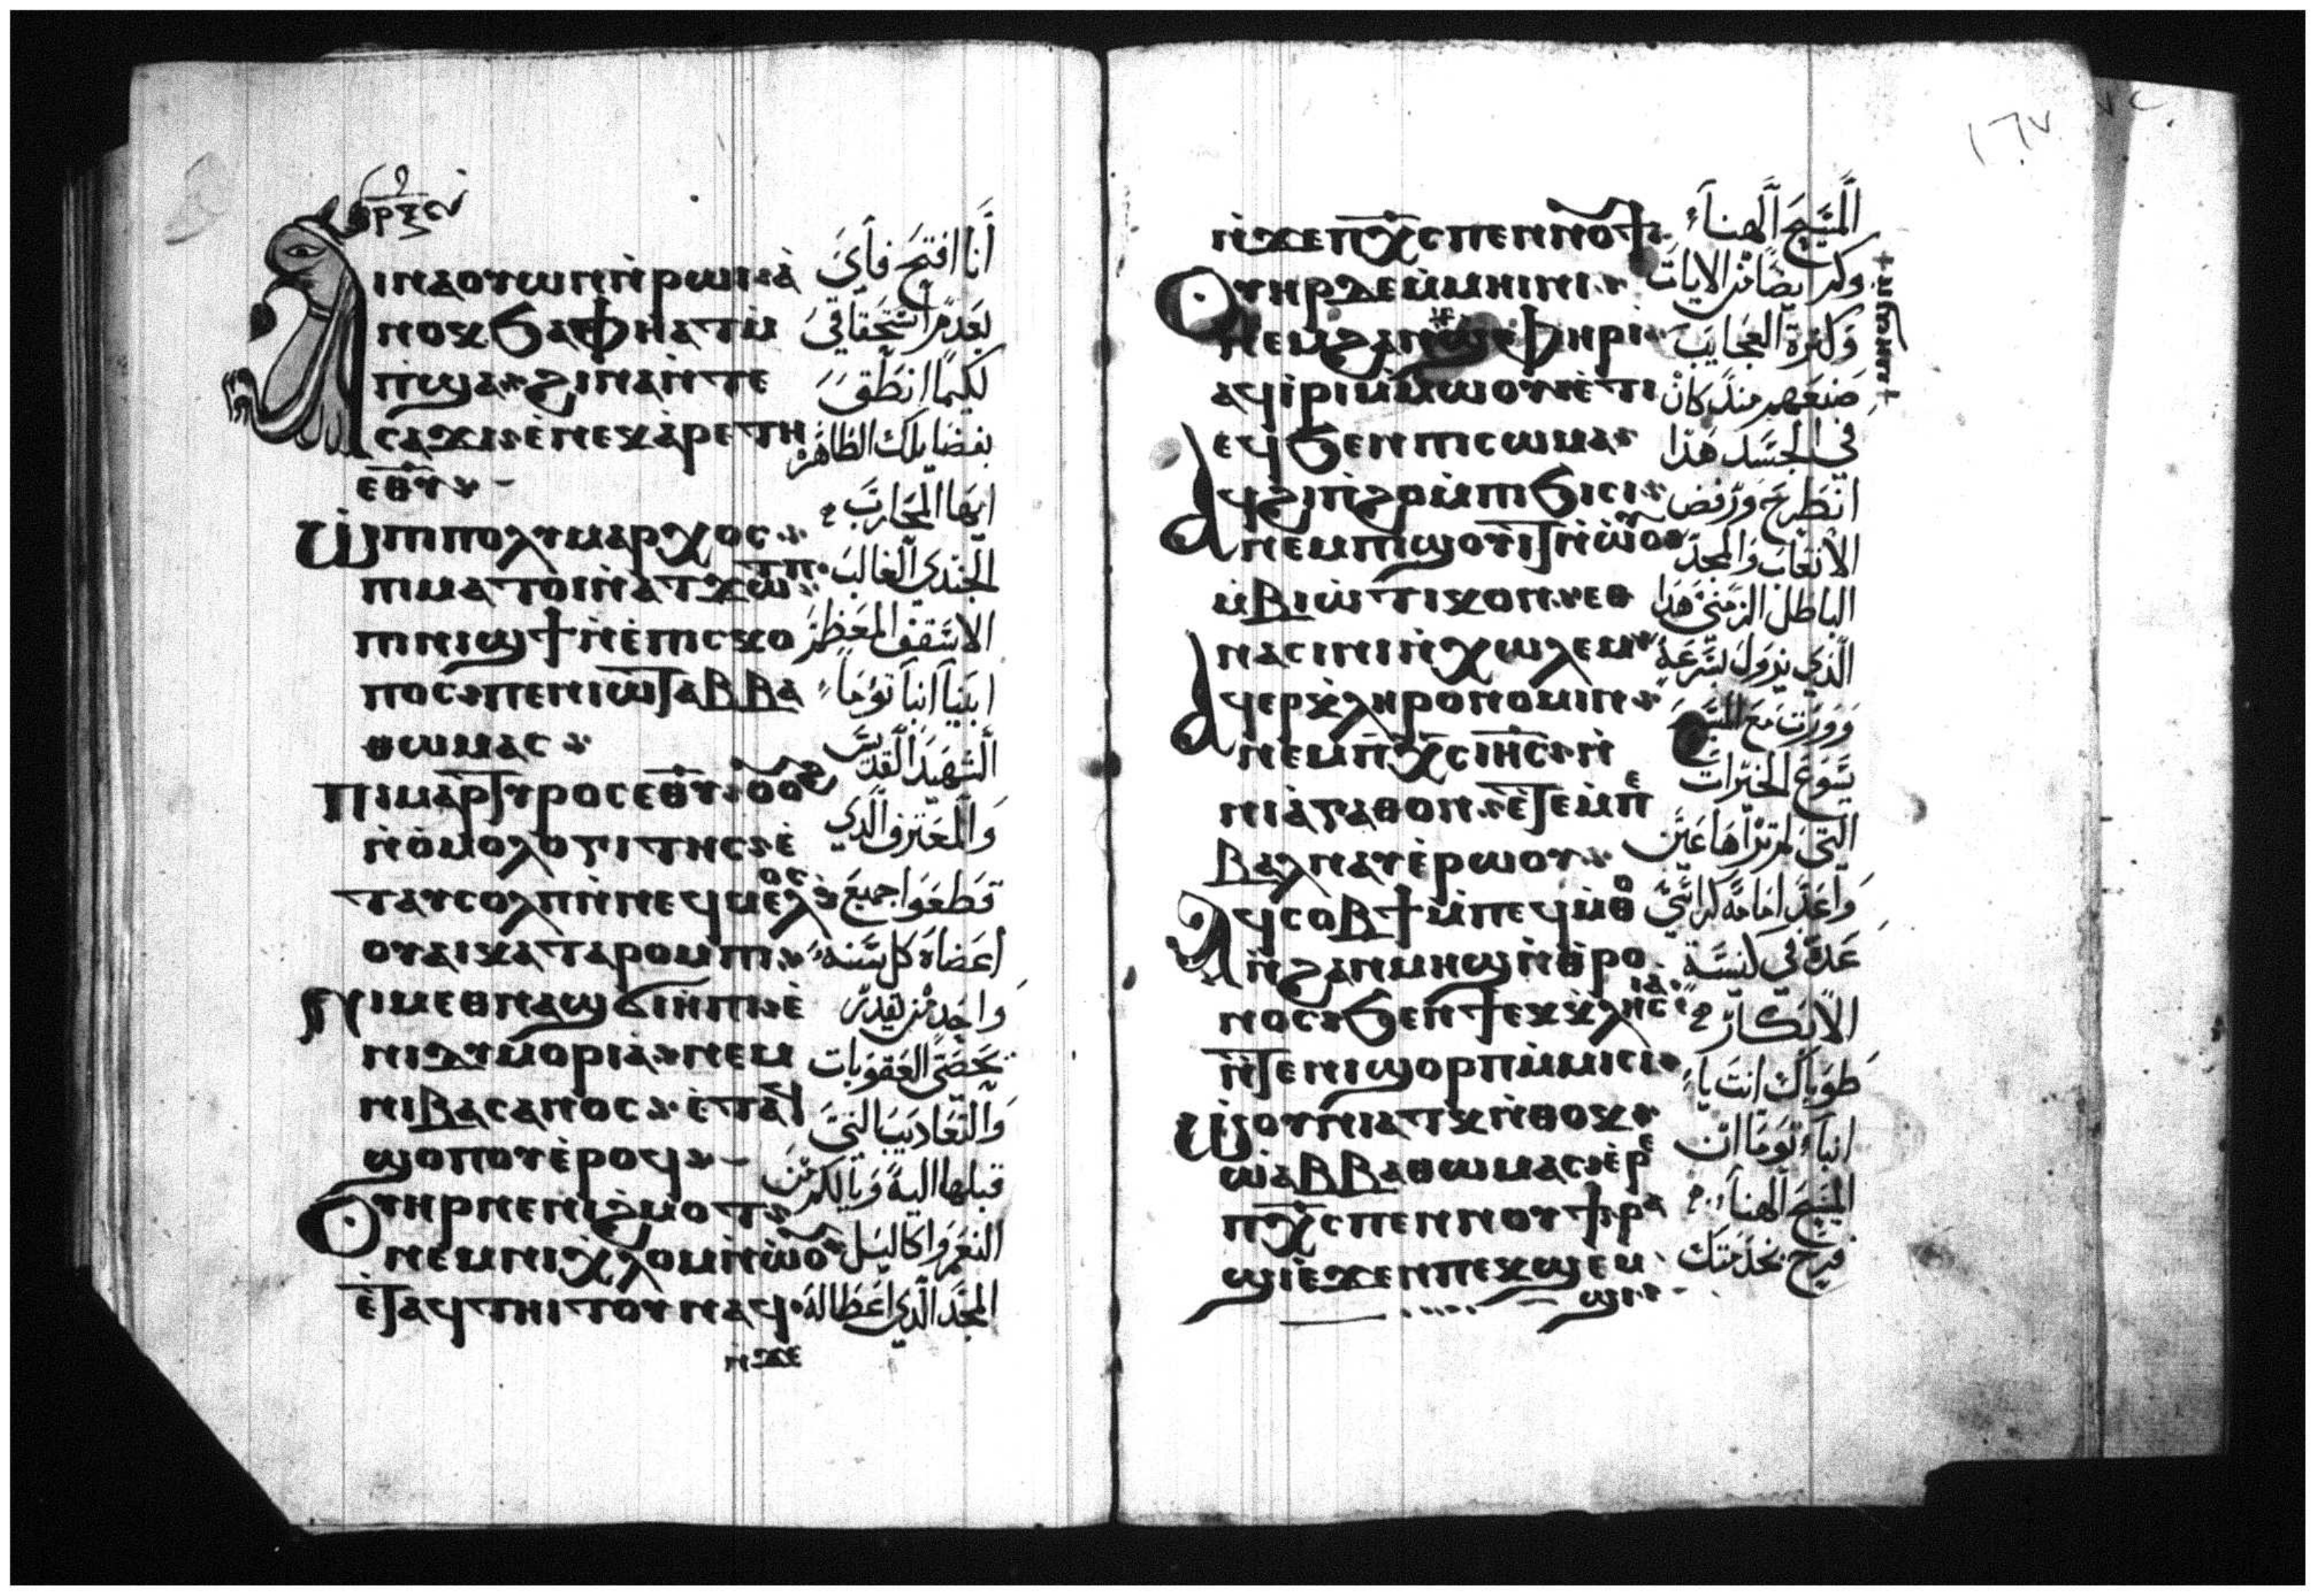 ⲓⲛⲁⲟⲩⲱⲛⲛ̀ⲣⲱⲓⲁ̀
ⲛⲟⲕϧⲁⲫϯⲛ̀ⲁⲧⲉⲙ
ⲡ̀ϣⲁ ϩⲓⲛⲁⲛ̀ⲧⲉ
ⲥⲁϫⲓ ⲉ̀ⲛⲉⲕⲁ̀ⲣⲉⲧⲏ
ⲉⲑⲩ
ⲱ̀ⲡⲓⲡⲟⲗⲩⲙⲁⲣⲭⲟⲥ
ⲡⲓⲙⲁⲧⲟⲓⲛ̀ⲁⲧϫⲱ
ⲡⲓⲛⲓϣϯⲛ̀ⲉ̀ⲡⲓⲥⲕⲟ
ⲡⲟⲥ ⲡⲉⲛⲓⲱⲧⲁⲃⲃⲁ
ⲑⲱⲙⲁⲥ
ⲡⲓⲙⲁⲣⲧⲩⲣⲟⲥⲉⲑⲩ ⲟⲩⲟϩ
ⲛ̀ⲟ̀ⲙⲟⲗⲟⲅⲓⲧⲏⲥ ⲉ̀
ⲧⲁⲩⲥⲟⲗⲡⲛ̀ⲛⲉϥⲙⲉⲗⲟⲥ
ⲟⲩⲁⲓⲕⲁⲧⲁⲣⲟⲙⲡⲓ
ⲛⲓⲙⲉⲑⲛⲁϣϭⲓⲏⲡⲓ ⲉ̀
ⲛⲓⲇⲩⲙⲟⲣⲓⲁ̀ ⲛⲉⲙ
ⲛⲓⲃⲁⲥⲁⲛⲟⲥ ⲉ̀ⲧⲁϥ
ϣⲟⲡⲟⲩⲉ̀ⲣⲟϥ
ⲟⲩⲏⲣⲛⲉⲛⲓϩ̀ⲙⲟⲧ
ⲛⲉⲙⲛⲓⲭ̀ⲗⲟⲙⲛ̀ⲱ̀ⲟⲩ
ⲉ̀ⲧⲁϥⲧⲏⲓⲧⲟⲩⲛⲁϥ
ⲛ̀ϫⲉ
أنا افتح فأي
بعدم استحقاقي
لكيما انطق
بفضايلك الظاهرة
ايها المحارب
الجندي الغالب
الاسقف المعظم
ابينا انبا توما
الشهيد القديس
والمعترف الذي
قطعوا جميع
اعضاه كل سنه
واحد من يقدر
يحصي العقوبات
والتعاديب التي
قبلها اليه وبالكثر من
النعم واكاليل
المجد الذي اعطا له
١٦٧
ⲛ̀ϫⲉⲡⲭ̅ⲥ̅ⲡⲉⲛⲛⲟⲩϯ
ⲟⲩⲏⲣⲇⲉⲙ̀ⲙⲏⲓⲛⲓ
ⲛⲉⲙϩⲁⲛϣ̀ⲫⲏⲣⲓ
ⲁϥⲓ̀ⲣⲓⲙ̀ⲙⲱⲟⲩⲛ̀ⲉ̀ⲧⲓ
ⲉϥϧⲉⲛⲡⲓⲥⲱⲙⲁ
ⲁϥϩⲓⲡ̀ϩⲟⲙ̀ⲡⲓϧⲓⲥⲓ
ⲛⲉⲙⲡⲓϣⲟⲩⲓⲧⲛ̀ⲱ̀ⲟⲩ
ⲙ̀ⲃⲓⲱⲧⲓⲕⲟⲛ ⲉⲑ
ⲛⲁⲥⲓⲛⲓⲛ̀ⲭⲱⲗⲉⲙ
ⲁϥⲉⲣⲕ̀ⲗⲏⲣⲟⲛⲟⲙⲓⲛ
ⲛⲉⲙⲡⲭ̅ⲥ̅ⲓⲏ̅ⲥ̅ ⲛ̀
ⲛⲓⲁ̀ⲅⲁⲑⲟⲛ ⲉ̀ⲧⲉⲙ̀ⲡⲉ
ⲃⲁⲗⲛⲁⲩⲉ̀ⲣⲱⲟⲩ
ⲁϥⲥⲟⲃϯⲙ̀ⲡⲉϥⲙ̀ⲑⲟ
ⲛ̀ϩⲁⲛⲙⲏϣⲛ̀ⲑⲣⲟ
ⲛⲟⲥ ϧⲉⲛϯⲉⲕⲕ̀ⲗⲏⲥⲓⲁ
ⲛ̀ⲧⲉⲛⲓϣⲟⲣⲡⲙ̀ⲙⲓⲥⲓ
ⲱ̀ⲟⲩⲛⲓⲁⲧⲕⲛ̀ⲑⲟⲕ
ⲱ̀ⲁⲃⲃⲁⲑⲱⲙⲁⲥ ⲉ̀ⲣⲉ
ⲡⲭ̅ⲥ̅ⲡⲉⲛⲛⲟⲩϯ ⲣⲁ
ϣⲓⲉ̀ϫⲉⲛⲡⲉⲕϣⲉⲙ
ϣⲓ
المسيح الهنا
وكم ايضا من الايات
وكثرة العجايب
صنعهم منذ كان
في الجسد هذا
انطرح ورفض
الاتعاب والمجد
الباطل الزمني هذا
الذي يزول بسرعة
وورث مع المسيح
يسوع الخيرات
التي لم تراها عين
واعد امامه كراسي
عدة في كنيسة
الابكار
طوباك انت يا
انبا توما ان
المسيح الهنا
فرح بخدمتك